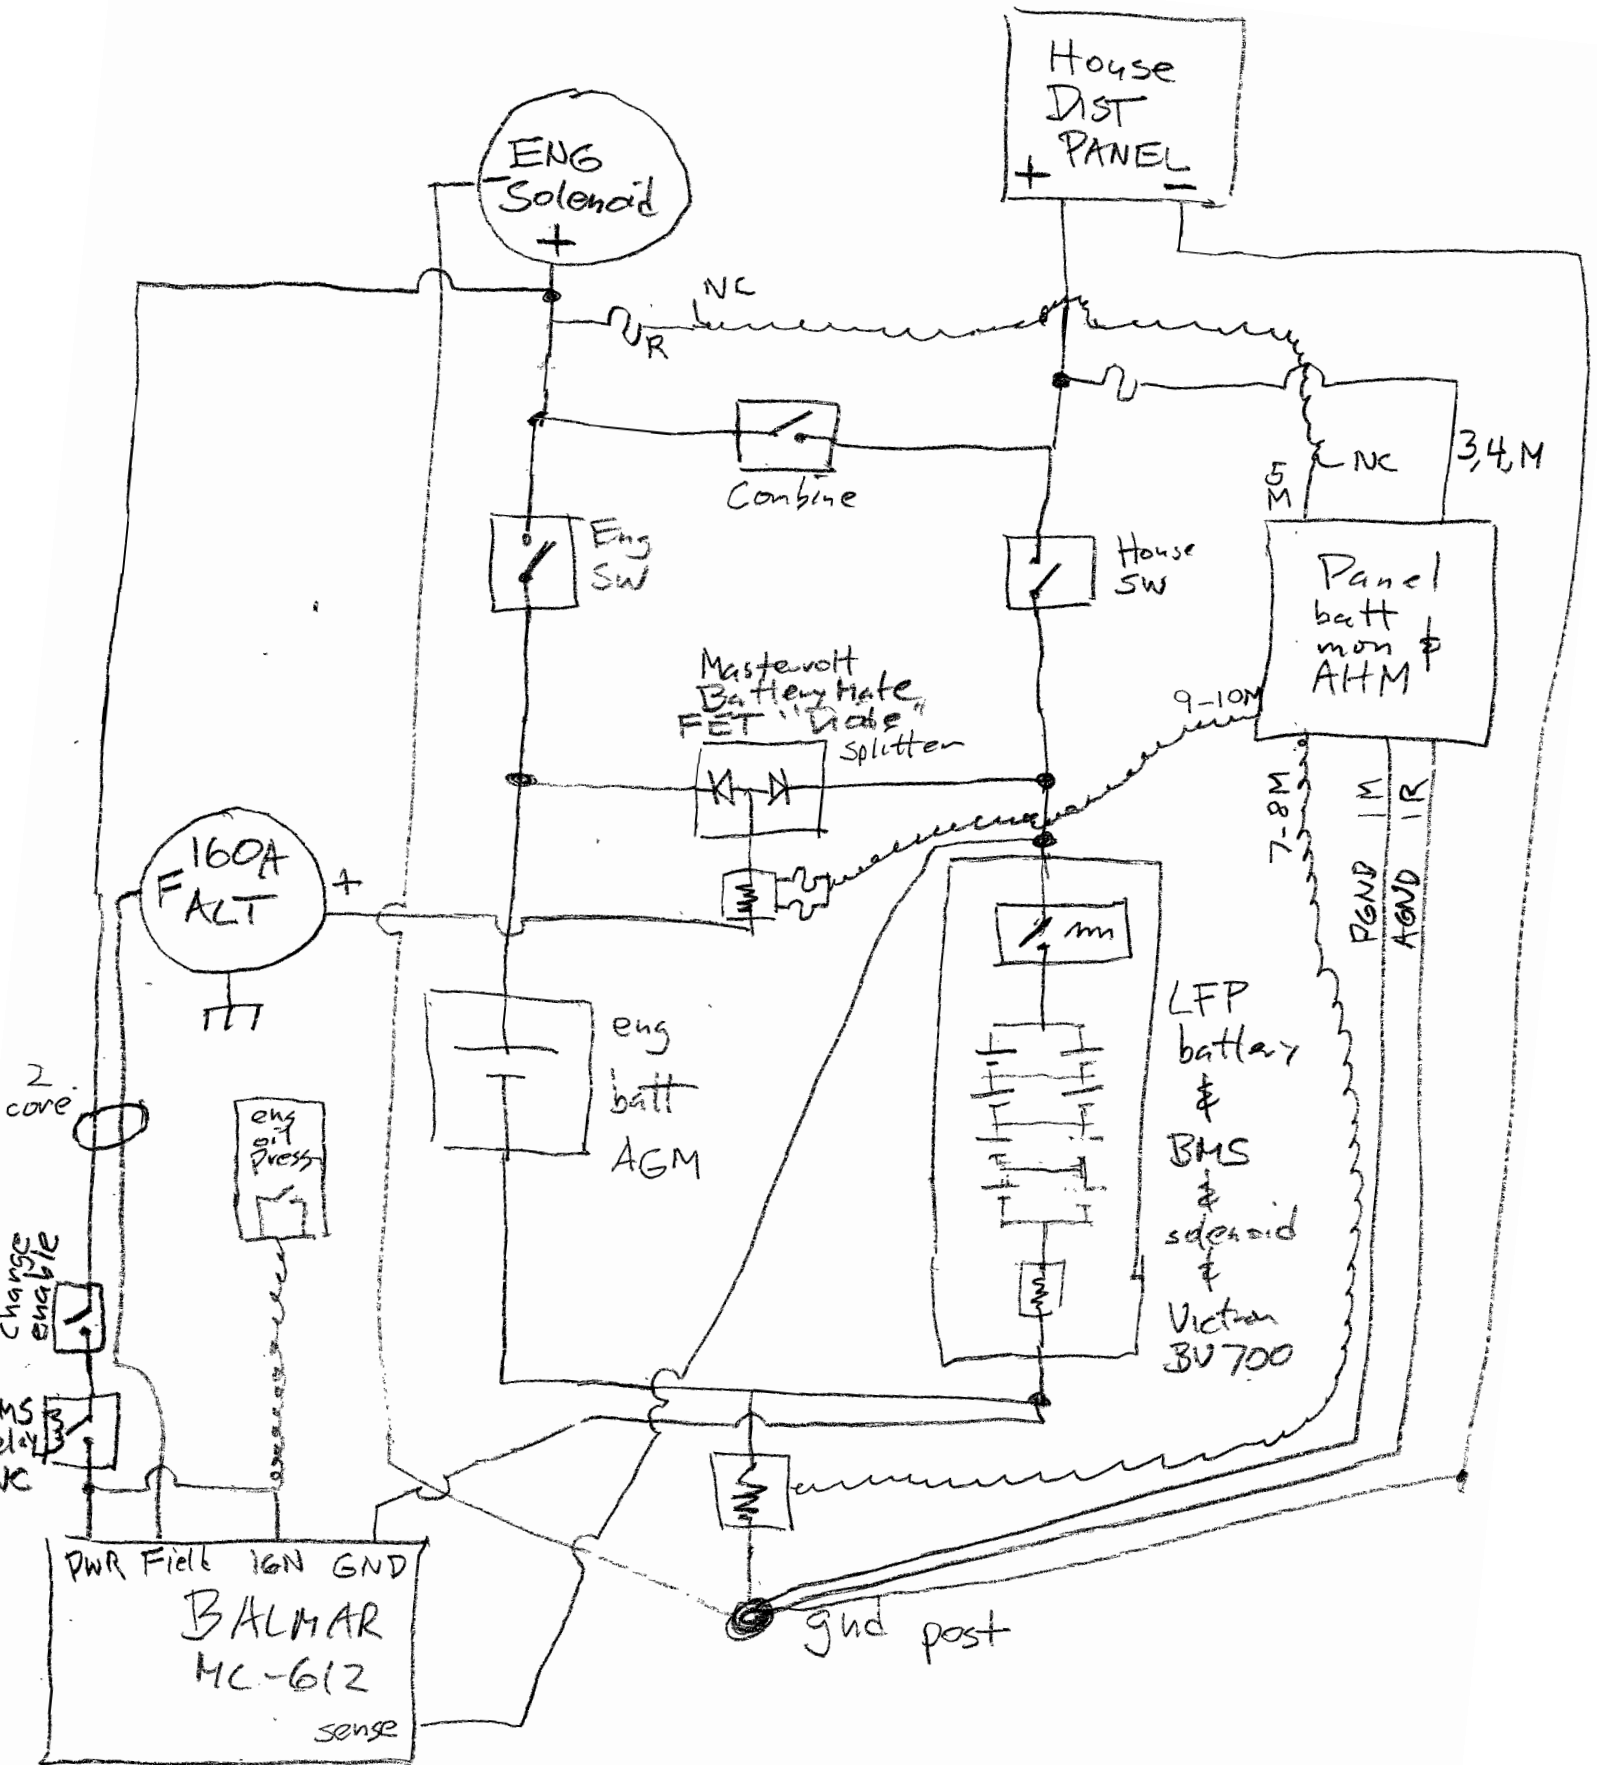 House
DIST
PANEL
+ −
− ENG
Solenoid
+
NC
R
3,4,M
NC
5
M
Combine
Eng
SW
House
SW
Panel
batt
mon &
AHM
Mastervolt
BatteryMate
FET "Diode"
splitter
9-10M
7-8M
1M
1R
PGND
AGND
160A
F ALT
+
LFP
battery
&
BMS
&
solenoid
&
Victron
BV700
eng
batt
AGM
2
core
eng
oil
press
Charge
enable
MS
elay
NC
PWR Field IGN GND
BALMAR
MC-612
sense
gnd post